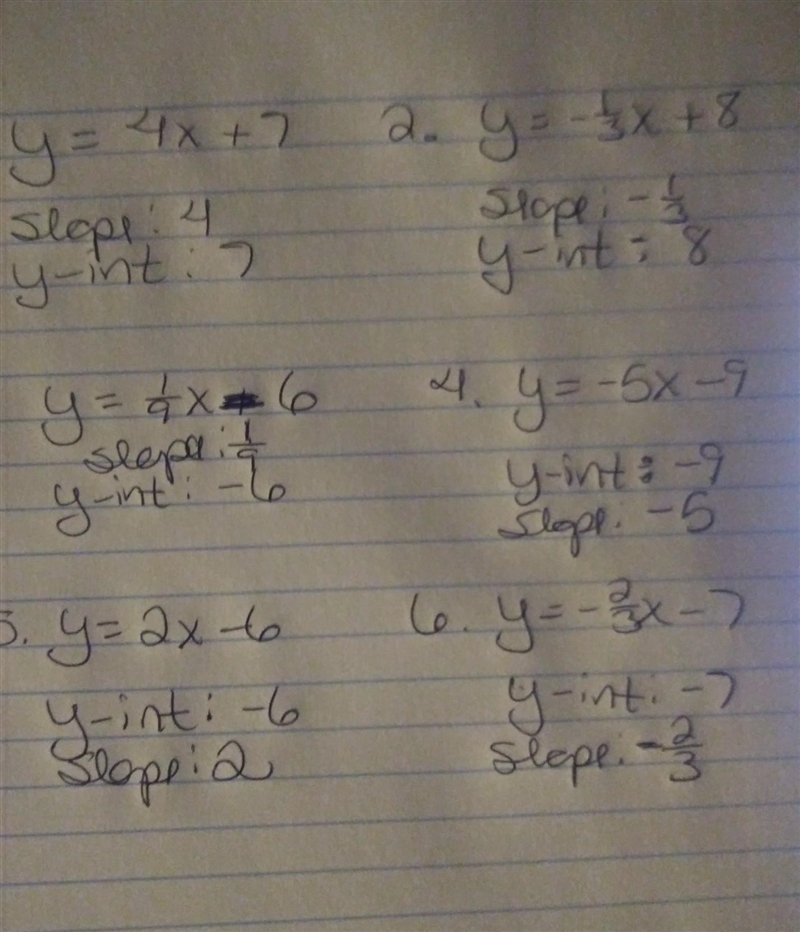 y = 4x + 7
slope: 4
y-int: 7
2. y = -1/3x + 8
slope: -1/3
y-int: 8
y = 1/9x - 6
slope: 1/9
y-int: -6
4. y = -5x - 9
y-int: -9
slope: -5
5. y = 2x - 6
y-int: -6
slope: 2
6. y = -2/3x - 7
y-int: -7
slope: -2/3